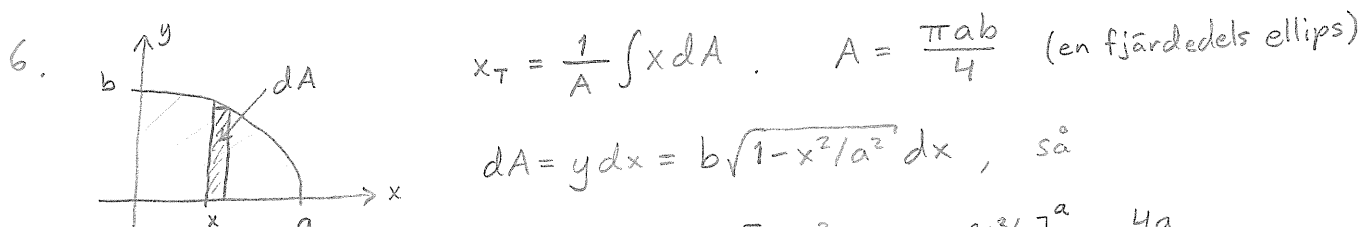 6.
y
b
dA
x
x
a
x_T = 1/A ∫ x dA . A = πab/4 (en fjärdedels ellips)
dA = y dx = b√(1-x²/a²) dx , så
4a